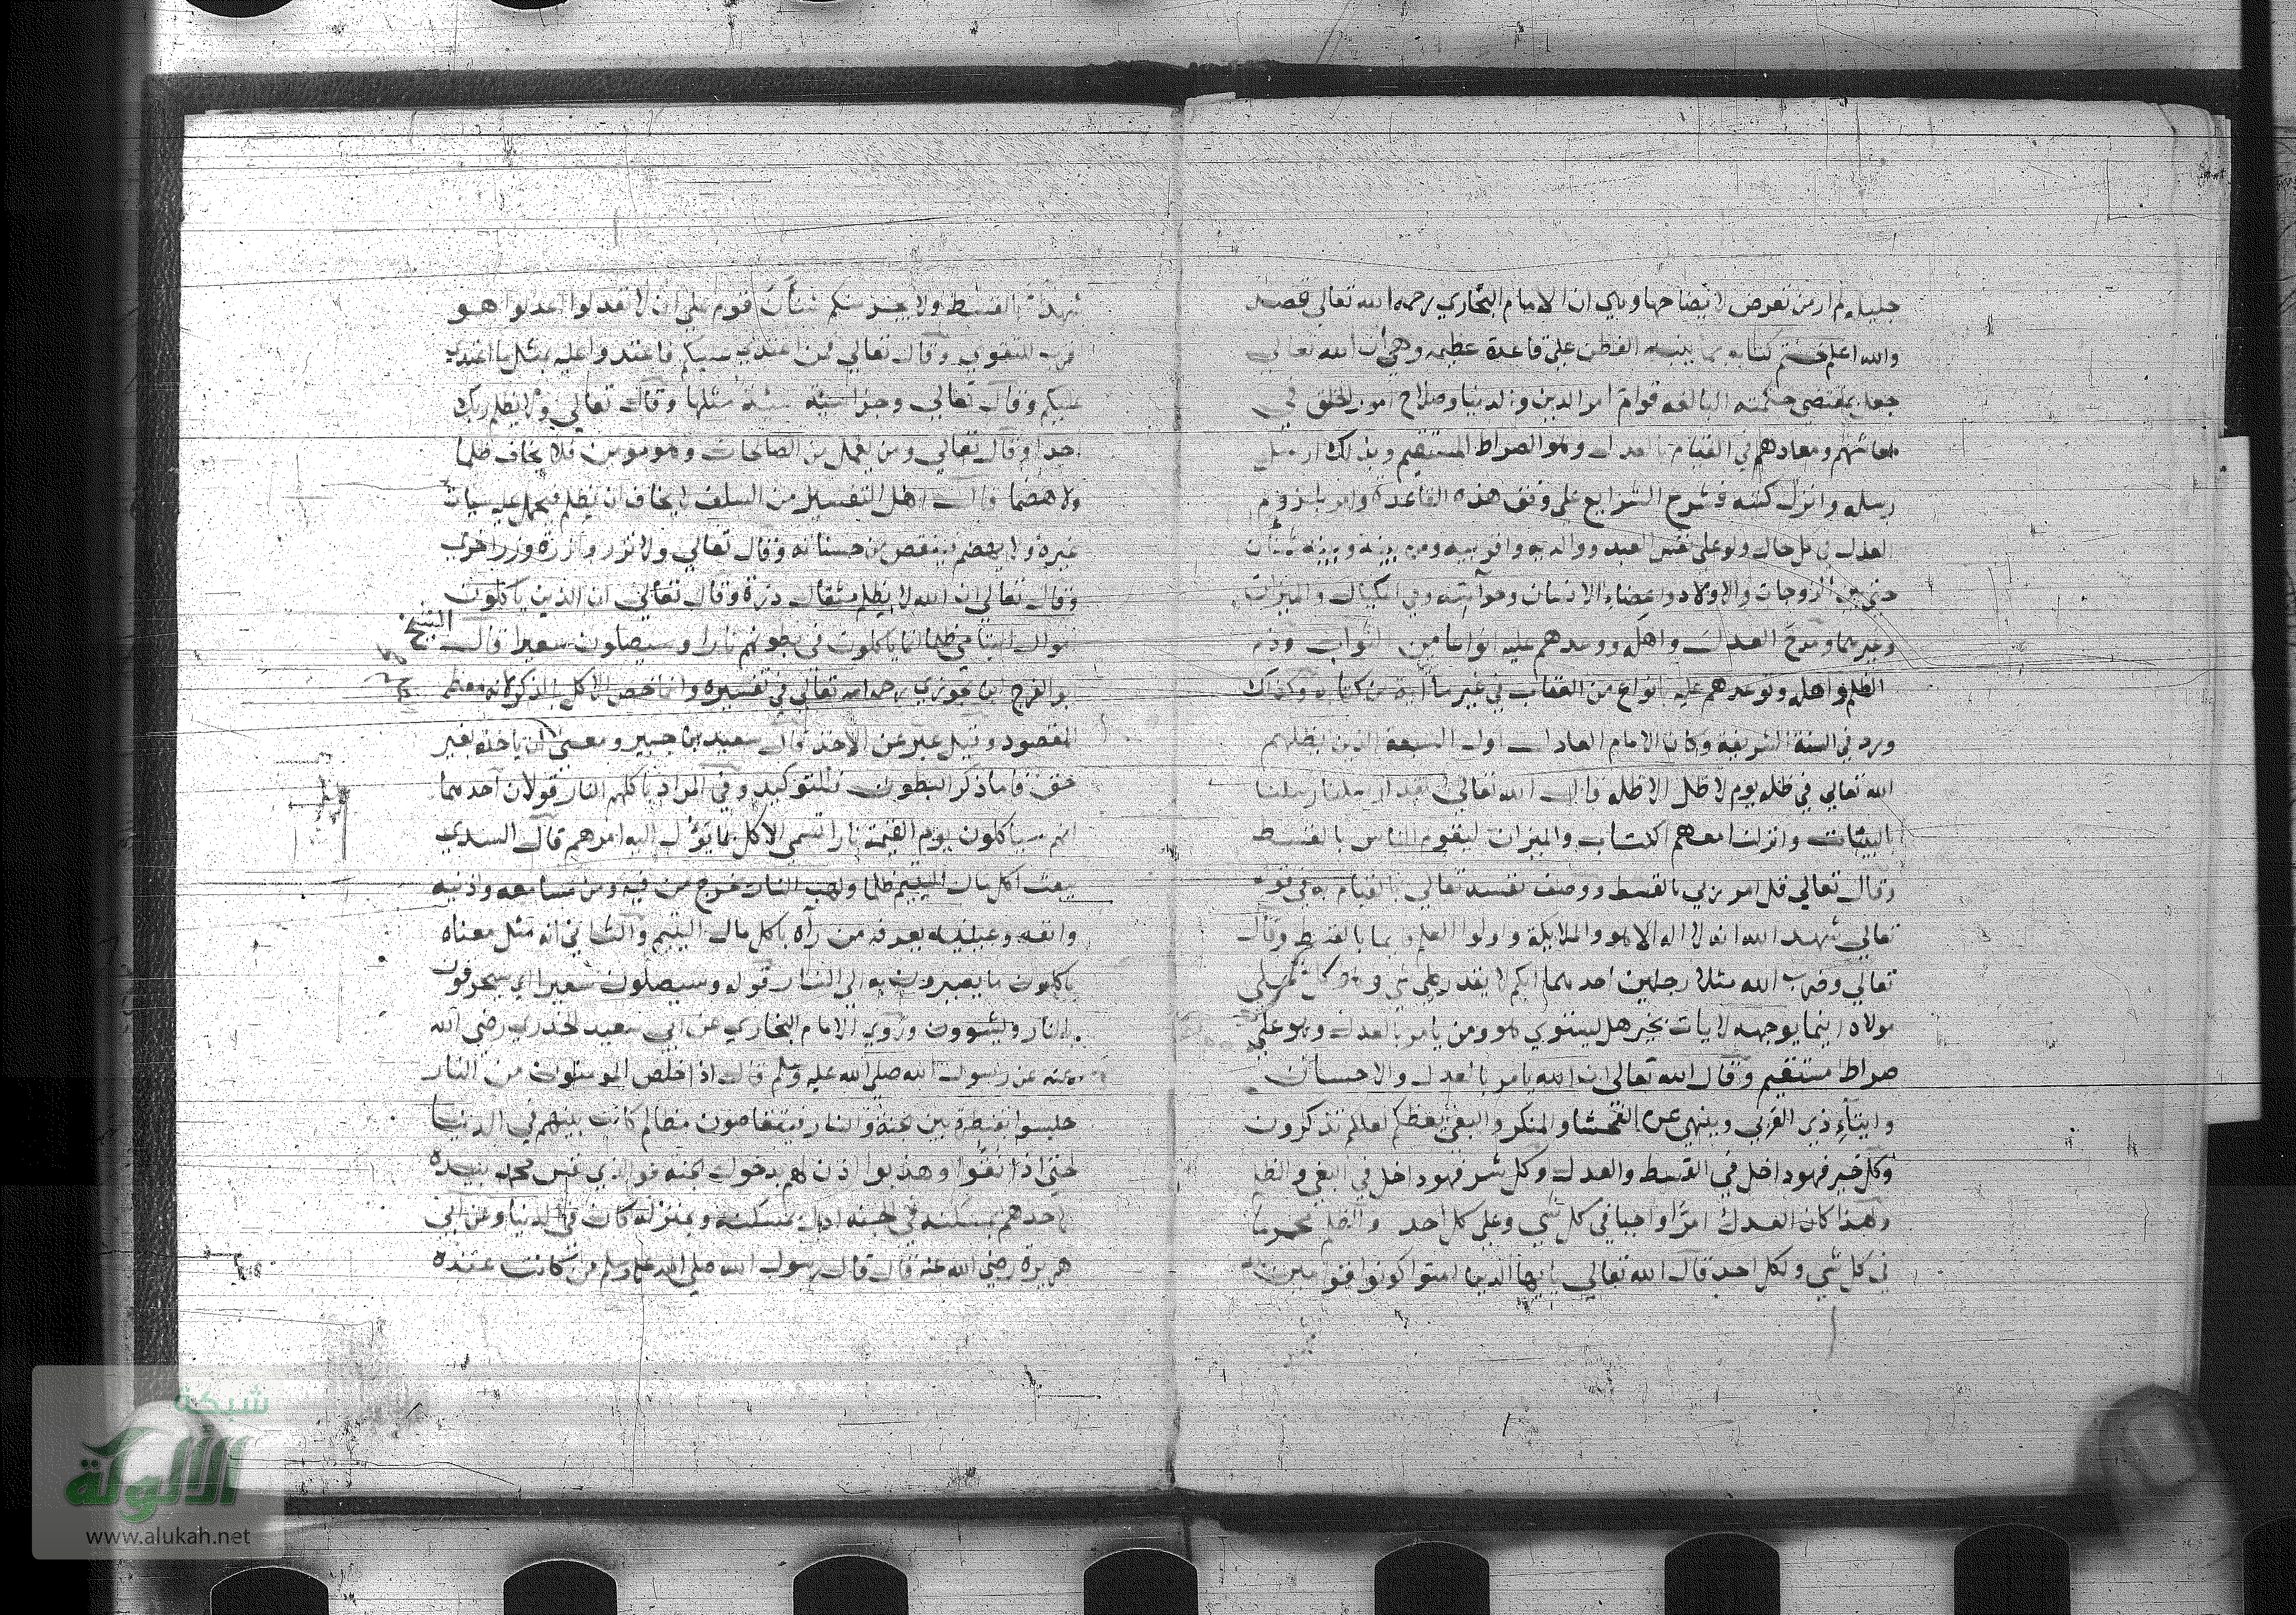 جليله لم ار من تعرض لايضاحها وهي ان الامام البخاري رحمه الله تعالى قصد
والله اعلم ختم كتابه بما ينبه الفطن على قاعدة عظيمه وهي أن الله تعالى
جعل بمقتضى حكمته البالغه قوام امر الدين والدنيا وصلاح امور الخلق في
معاشهم ومعادهم في القيام بالعدل وهو الصراط المستقيم وبذلك ارسل
رسله وانزل كتبه فشرح الشرايع على وفق هذه القاعدة وامر بلزوم
العدل في كل حال ولو على نفس العبد ووالديه واقربيه ومن بينه وبينه شنأن
حتى بين الزوجات والاولاد واعضاء الانسان وفي المكيال والميزان
وغيرهما ومدح العدل واهله ووعدهم عليه انواعا من الثواب وذم
الظلم واهله وتوعدهم عليه بانواع من العقاب في غير ما آية من كتابه وكذلك
ورد في السنة الشريفة وكان الامام العادل اول السبعة الذين يظلهم
الله تعالى في ظله يوم لا ظل الا ظله قال الله تعالى لقد ارسلنا رسلنا
بالبينات وانزلنا معهم الكتاب والميزان ليقوم الناس بالقسط
وقال تعالى قل امر ربي بالقسط ووصف نفسه تعالى بالقيام به في قوله
تعالى شهد الله انه لا اله الا هو والملايكة واولوا العلم قايما بالقسط وقال
تعالى وضرب الله مثلا رجلين احدهما ابكم لا يقدر على شي وهو كل على
مولاه اينما يوجهه لا يات بخير هل يستوي هو ومن يامر بالعدل وهو على
صراط مستقيم وقال الله تعالى ان الله يامر بالعدل والاحسان
وايتاء ذي القربى وينهى عن الفحشا والمنكر والبغي يعظكم لعلكم تذكرون
وكل خير فهو داخل في القسط والعدل وكل شر فهو داخل في البغي والظلم
ولهذا كان العدل امرًا واجبا في كل شي وعلى كل احد والظلم محرما
في كل شي ولكل احد قال الله تعالى يا ايها الذين امنوا كونوا قوامين لله
شهدآء بالقسط ولا يجرمنكم شنأن قوم على ان لا تعدلوا اعدلوا هو
اقرب للتقوى وقال تعالى فمن اعتدى عليكم فاعتدوا عليه بمثل ما اعتدى
عليكم وقال تعالى وجزا سيئة سيئة مثلها وقال تعالى ولا يظلم ربك
احدا وقال تعالى ومن يعمل من الصالحات وهو مومن فلا يخاف ظلما
ولا هضما قال اهل التفسير من السلف لا يخاف ان يظلم فيحمل عليه سيات
غيره ولا يهضم فينقص من حسناته وقال تعالى ولا تزر وازرة وزر اخرى
وقال تعالى ان الله لا يظلم مثقال ذرة وقال تعالى ان الذين ياكلون
اموال اليتامى ظلما انما ياكلون في بطونهم نارا وسيصلون سعيرا قال الشيخ
ابو الفرج ابن الجوزي رحمه الله تعالى في تفسيره وانما خص الاكل بالذكر لانه معظم
المقصود وقيل عبر عن الاخذ قال سعيد بن جبير ومعنى ان ياخذه بغير
حق فاما ذكر البطون فللتوكيد وفي المراد باكلهم النار قولان احدهما
انهم سياكلون يوم القيمة نارا تسمى الاكل بما يؤل اليه امرهم قال السدي
يبعث اكل مال اليتيم ظلما ولهب النار يخرج من فيه ومن مسامعه واذنيه
وانفه وعينيه يعرفه من رآه باكل مال اليتيم والثاني انه مثل معناه
ياكلون ما يصيرون به الى النار قوله وسيصلون سعيرا اي سيحرقون
بالنار وليشوون وروى الامام البخاري عن ابي سعيد الخدري رضي الله
عنه عن رسول الله صلى الله عليه وسلم قال اذا خلص المومنون من النار
حبسوا بقنطرة بين الجنة والنار فيتقاصون مظالم كانت بينهم في الدنيا
حتى اذا نقوا وهذبوا اذن لهم بدخول الجنة فوالذي نفس محمد بيده
لاحدهم بمسكنه في الجنة ادل بمسكنه وبمنزله كان في الدنيا وعن ابي
هريرة رضي الله عنه قال قال رسول الله صلى الله عليه وسلم من كانت عنده
شبكة
الألوكة
www.alukah.net